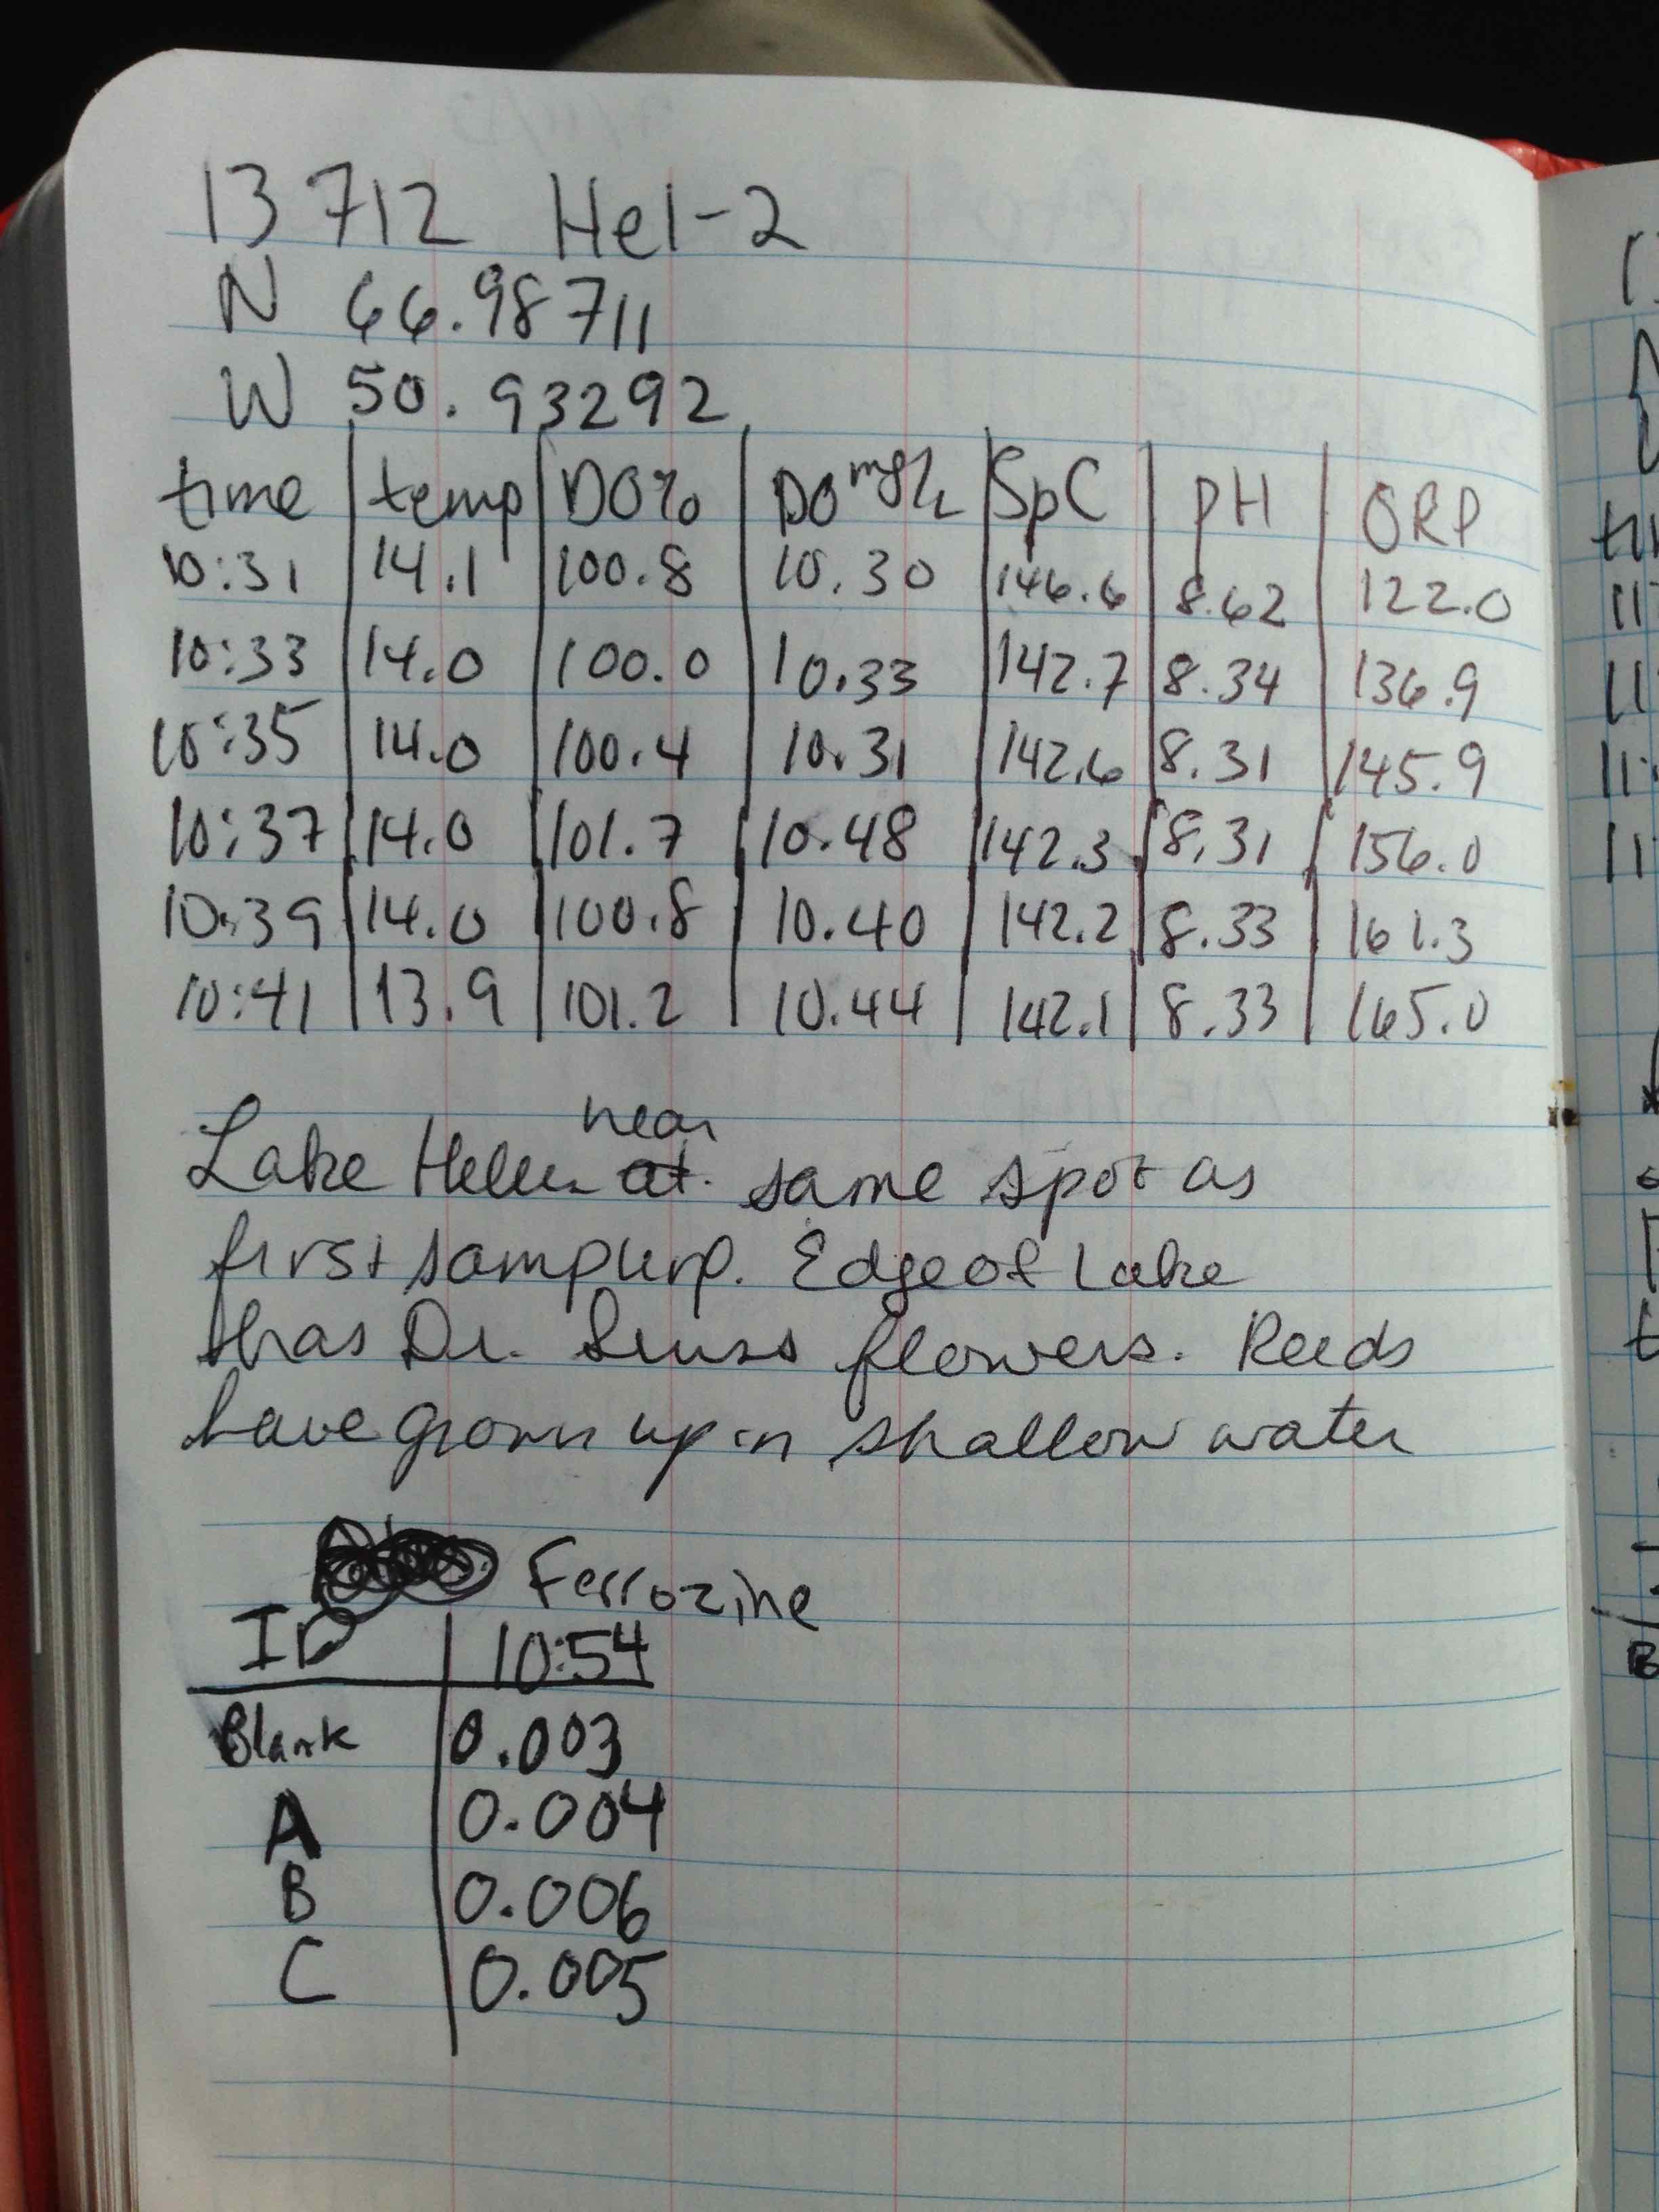 13712 Hel-2
N 66.98711
W 50.93292
time temp DO% DO mg/L SpC pH ORP
10:31 14.1 100.8 10.30 146.6 8.62 122.0
10:33 14.0 100.0 10.33 142.7 8.34 136.9
10:35 14.0 100.4 10.31 142.6 8.31 145.9
10:37 14.0 101.7 10.48 142.3 8.31 156.0
10:39 14.0 100.8 10.40 142.2 8.33 161.3
10:41 13.9 101.2 10.44 142.1 8.33 165.0
near
Lake Helen at same spot as
first sampling. Edge of Lake
has Dr. Seuss flowers. Reeds
have grown up in shallow water
Ferrozine
ID 10:54
Blank 0.003
A 0.004
B 0.006
C 0.005